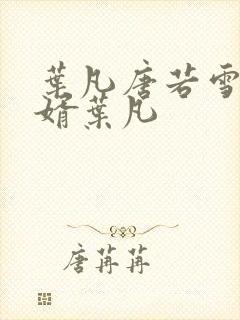 葉凡唐若雪
婿葉凡
唐苒苒